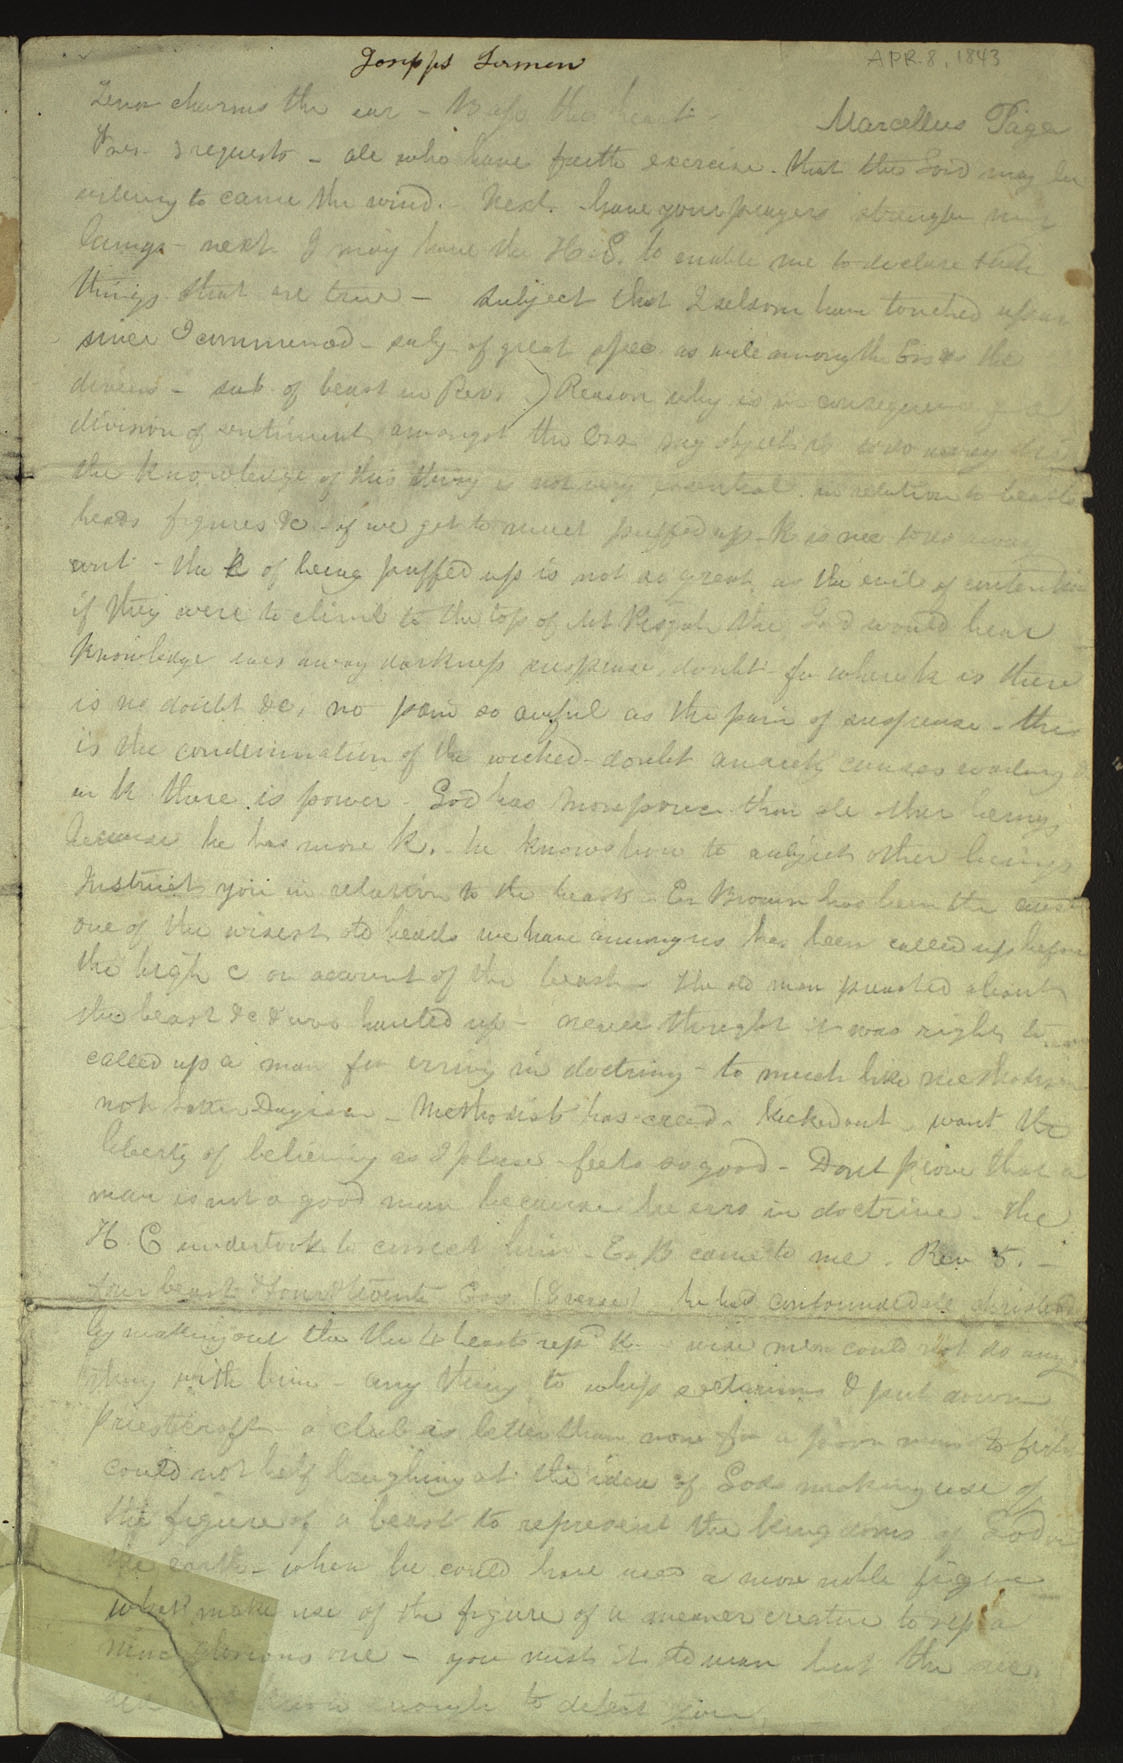 Joseph's Sermon
APR. 8, 1843
Tenor charms the ear - Bass the heart -
Marcellus Page
3 requests - all who have faith exercise. that the Lord may be
willing to calm the wind. - Next. have your prayers strengthen my
lungs - next I may have the H. S. to enable me to declare such
things that are true - subject that I seldom have touched upon
since I commenced - subj of great spec as well among the Ers as the
divines - sub of beast in Rev. ) Reason why is in consequence of a
division of sentiment amongst the Ers my object is to do away
the knowledge of this thing is not very essential. in relation to beasts
heads figures &c - if we get to much puffed up - k is nec to do away
cont - the k of being puffed up is not so great as the evils of contention
if they were to climb to the top of Mt Pisgah the Lord would hear
knowledge does away darkness suspense, doubt for where k is there
is no doubt &c, no pain so awful as the pain of suspense - this
is the condemnation of the wicked - doubt anxiety causes wailing &
in k there is power - God has more power than all other beings
because he has more k. - he knows how to subject other beings
Instruct you in relation to the beasts - Er Brown has been the
one of the wisest old heads we have among us has been called up before
the high c on account of the beast - the old man preached about
the beast &c & was hauled up - never thought it was right to
called up a man for erring in doctring - to much like methodism
not Latter Dayism - Methodist has creed - kicked out. want the
liberty of believing as I please - feels so good - Dont prove that a
man is not a good man because he errs in doctrine - The
H. C undertook to correct him - Er B came to me. Rev 5. -
four beasts & four & twenty Ers (Erasee) - he had confounded all christendom
by making out the the 4 beasts rep k - wise men could not do any
thing with him - any thing to whip sectarians & put down
priestcraft - a club is better than none for a poor man to fight
could not help laughing at the idea of God making use of
the figure of a beast to represent the kingdoms of God on
the earth - when he could have used a more noble figure
what make use of the figure of a meaner creature to rep a
more glorious one - you mist it old man but the sec
did not know enough to detect you